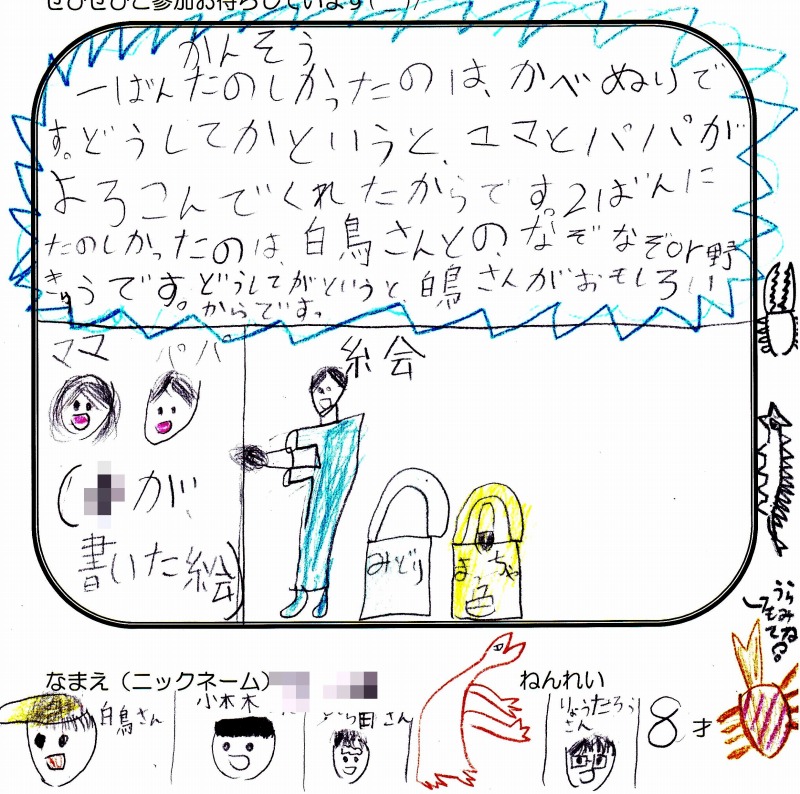 ぜひぜひご参加お待ちしています(^_^)/
かんそう
一ばんたのしかったのは、かべぬりで
す。どうしてかというと、ママとパパが
よろこんでくれたからです。2ばんに
たのしかったのは、白鳥さんとの、なぞなぞor野
きゅうです。どうしてがというと白鳥さんがおもしろい
からです。
ママ パパ
絵
(が
書いた絵)
みどり
まっちゃ
色
うら
みね
てもてね
なまえ(ニックネーム)
ねんれい
白鳥さん
小林木
田さん
りょうたろう
さん
8才